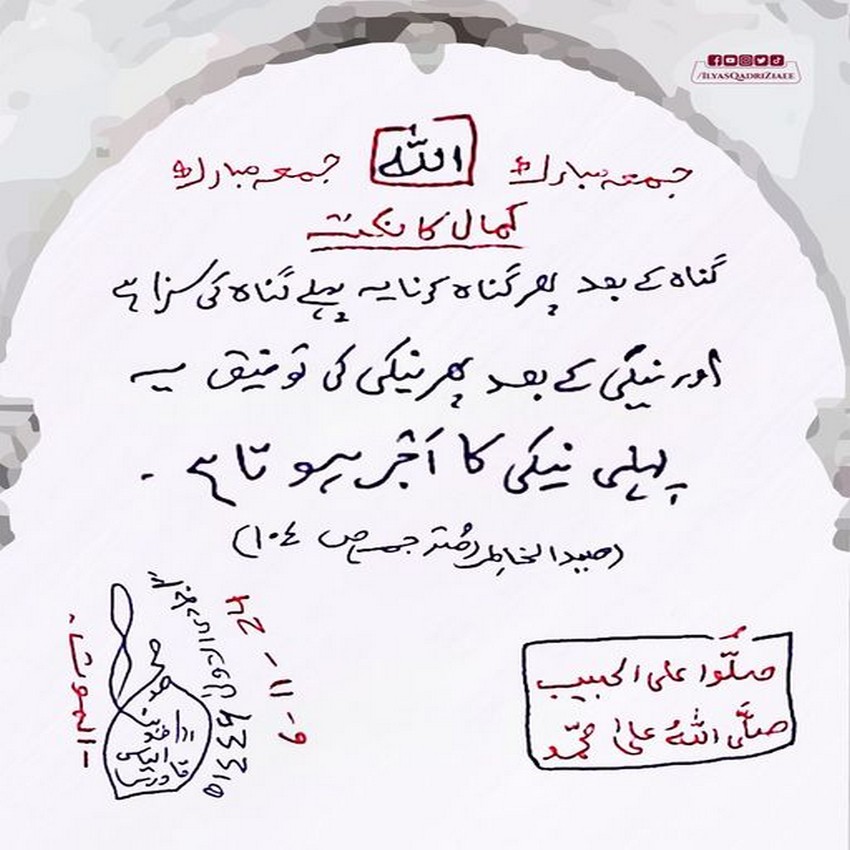 /ILYASQADRIZIAEE
جمعہ مبارک اللہ جمعہ مبارک
کمال کا نکتہ
گناہ کے بعد پھر گناہ کرنا یہ پہلے گناہ کی سزا ہے
اور نیکی کے بعد پھر نیکی کی توفیق یہ
پہلی نیکی کا اَجْر ہوتا ہے ۔
(صید الخاطر مترجم ص ١٠٤)
صلُّوا علی الحبیب
صلَّی اللہُ علیٰ محمّد
٩-١١-٢٤
الیاس
قادری
الموت